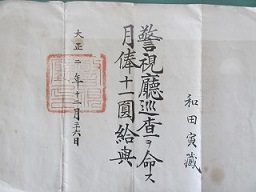 和田寅藏
警視廳巡査ヲ命ス
月俸十一圓給與
大正二年十二月十六日